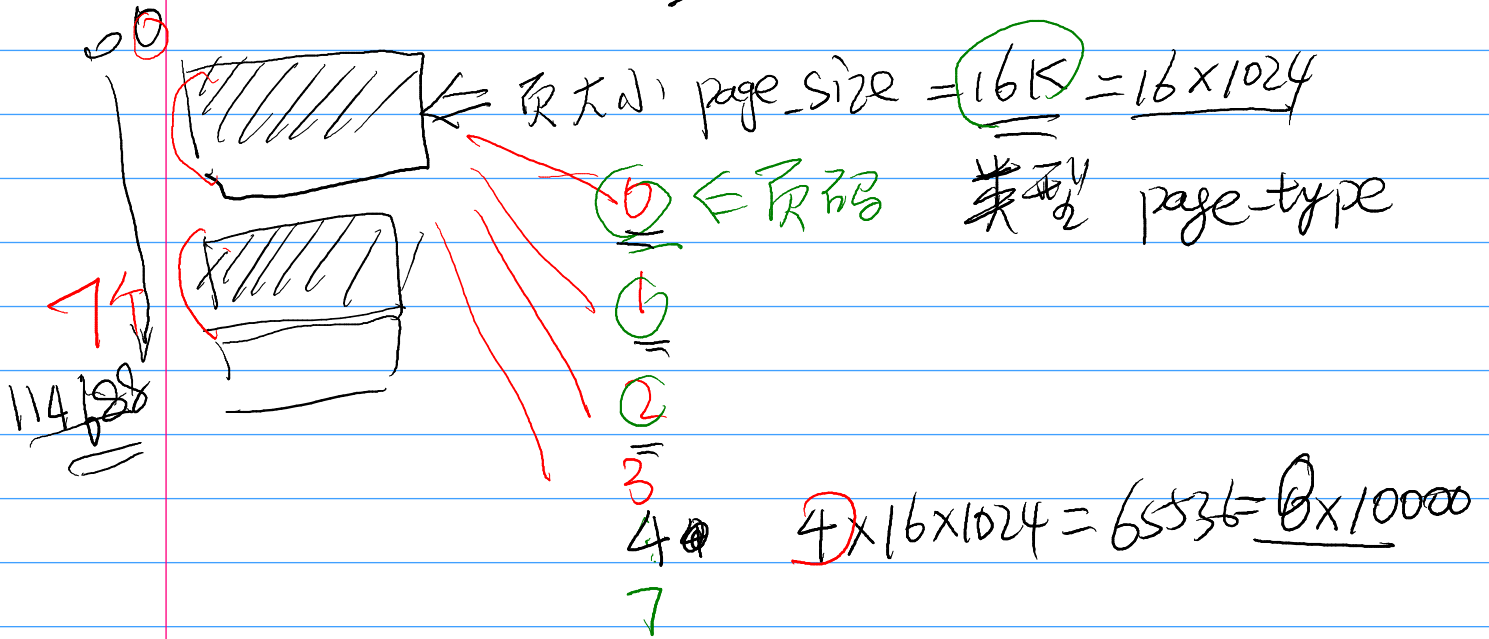 0
页大小 page_size = 16K = 16×1024
0 ⇐ 页码 类型 page-type
7个
1
114688
2
3
4
4×16×1024=65536=0×10000
7